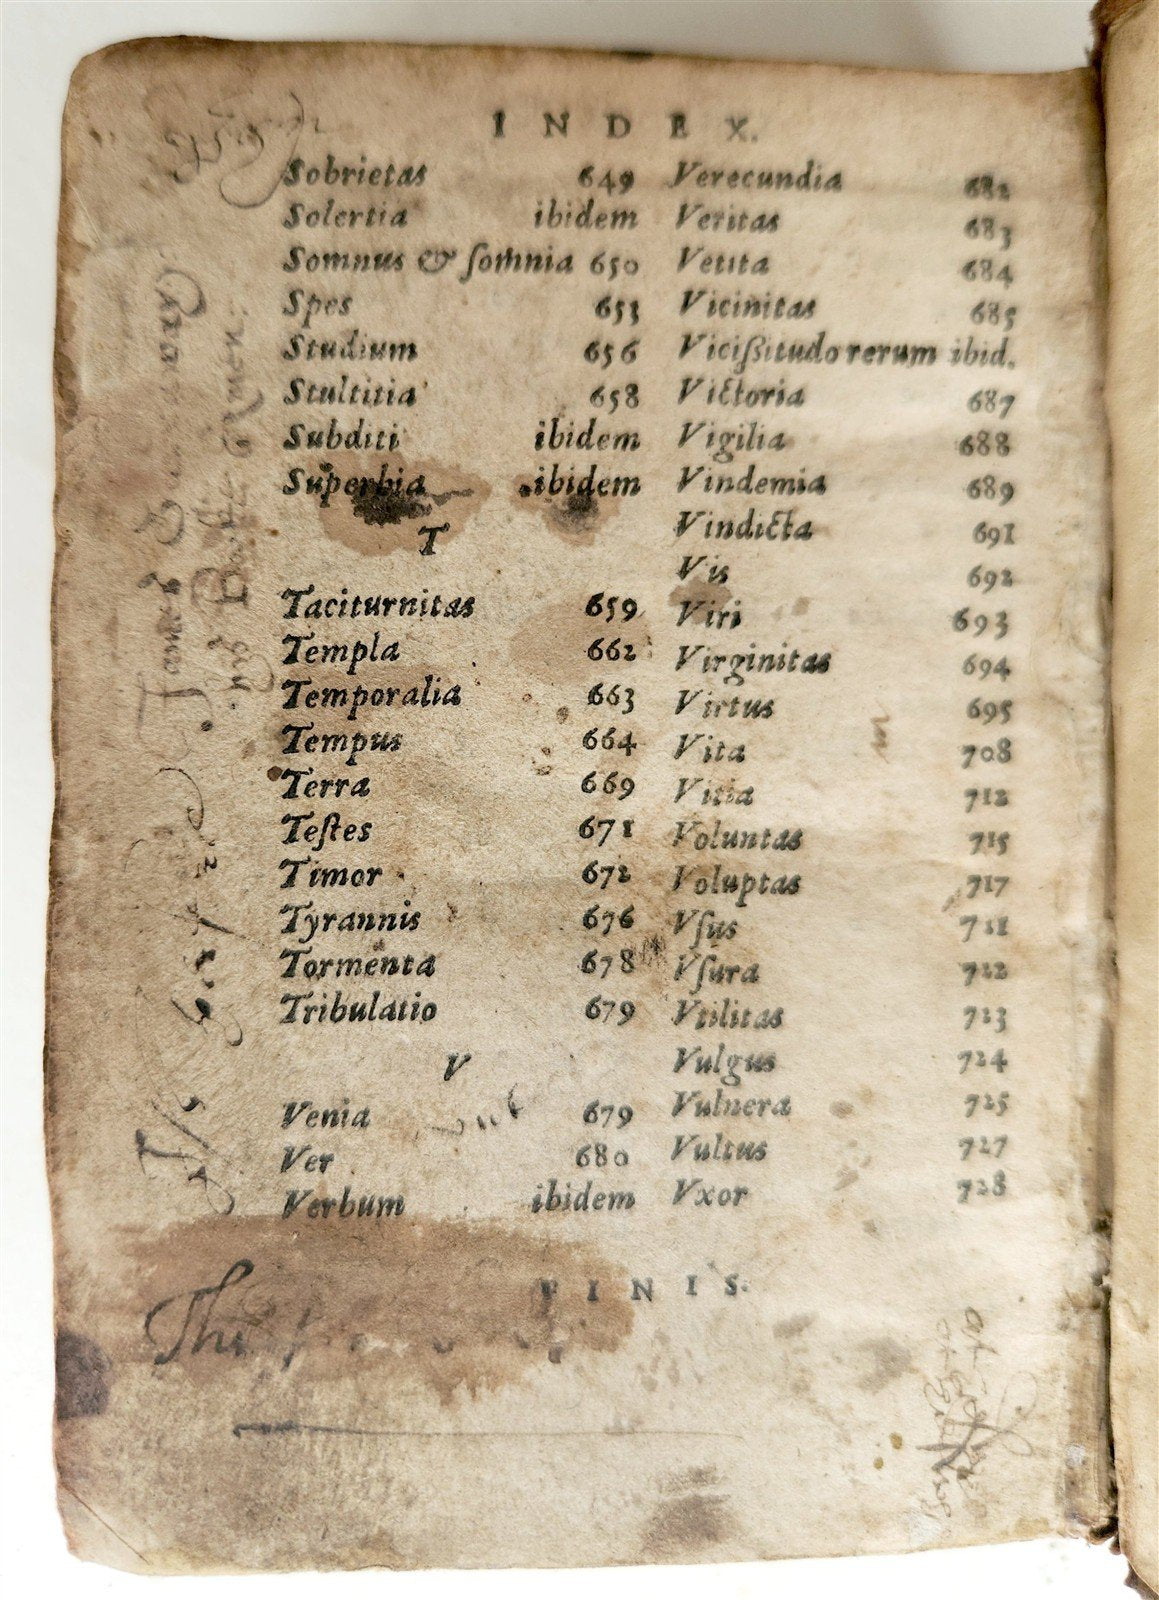 INDEX.
Sobrietas 649
Solertia ibidem
Somnus & ſomnia 650
Spes 653
Studium 656
Stultitia 658
Subditi ibidem
Superbia ibidem
T
Taciturnitas 659
Templa 662
Temporalia 663
Tempus 664
Terra 669
Teſtes 671
Timor 672
Tyrannis 676
Tormenta 678
Tribulatio 679
V
Venia 679
Ver 680
Verbum ibidem
Verecundia 682
Veritas 683
Vetita 684
Vicinitas 685
Viciſsitudo rerum ibid.
Victoria 687
Vigilia 688
Vindemia 689
Vindicta 691
Vis 692
Viri 693
Virginitas 694
Virtus 695
Vita 708
Vitia 712
Voluntas 715
Voluptas 717
Vſus 721
Vſura 722
Vtilitas 723
Vulgus 724
Vulnera 725
Vultus 727
Vxor 728
FINIS.
James
his Booke
The